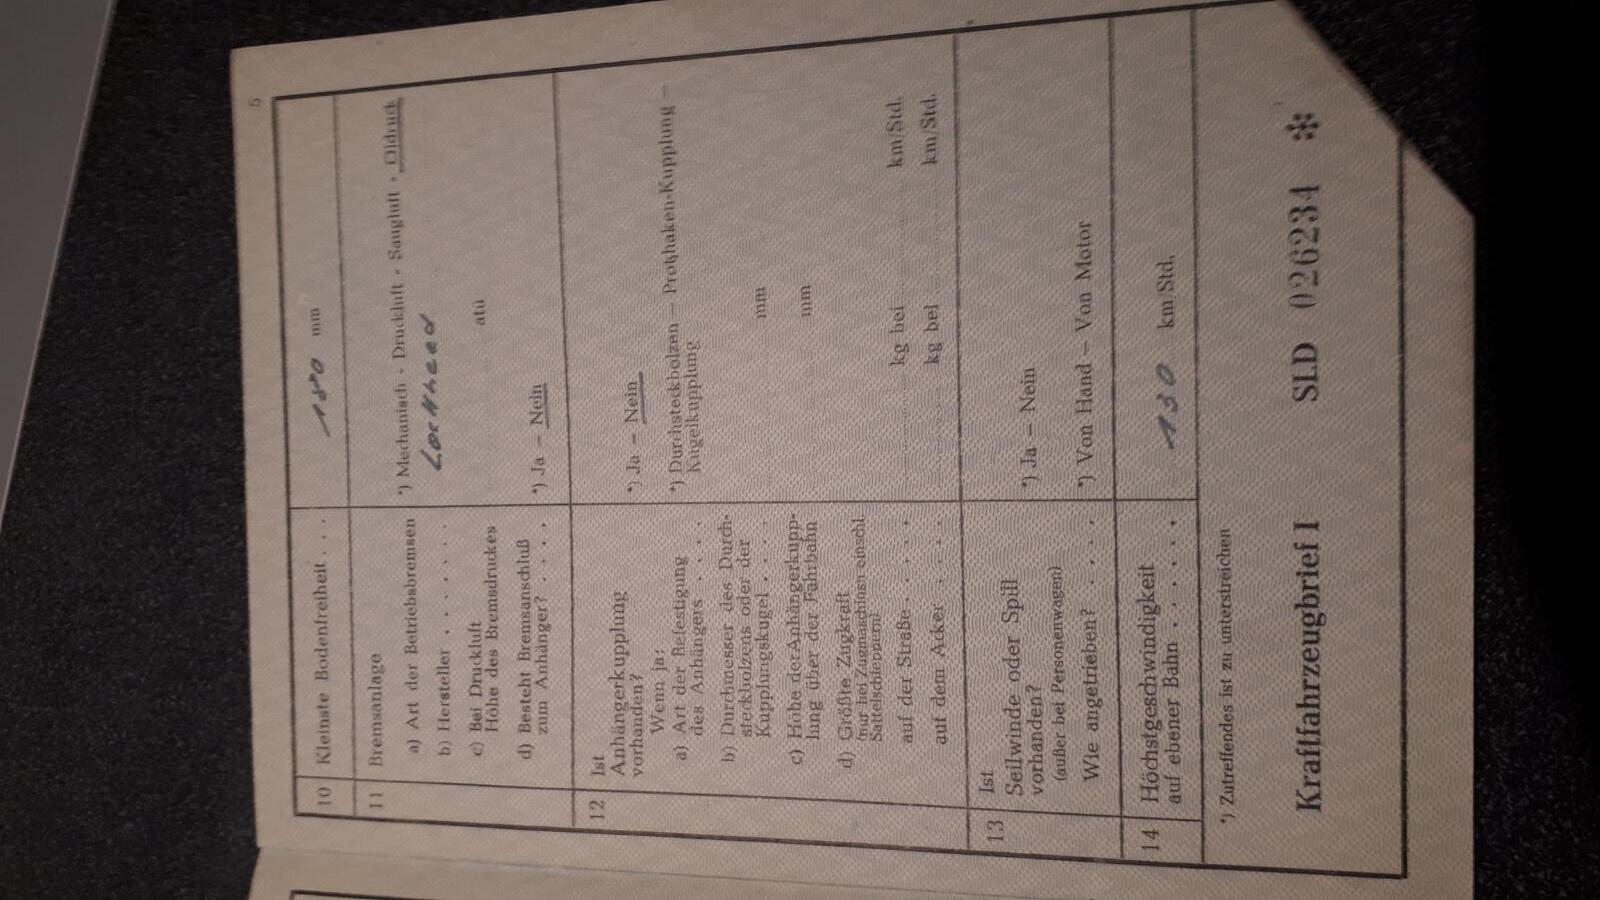 5
10 Kleinste Bodenfreiheit . . . 180 mm
11 Bremsanlage
a) Art der Betriebsbremsen *) Mechanisch - Druckluft - Saugluft - Öldruck
b) Hersteller . . . . . . Lockheed
c) Bei Druckluft
Höhe des Bremsdruckes atü
d) Besteht Bremsanschluß
zum Anhänger? . . . . *) Ja – Nein
12 Ist
Anhängerkupplung
vorhanden? *) Ja – Nein
Wenn ja:
a) Art der Befestigung *) Durchsteckbolzen – Protzhaken-Kupplung –
des Anhängers . . . . Kugelkupplung
b) Durchmesser des Durch-
steckbolzens oder der
Kupplungskugel . . . . mm
c) Höhe der Anhängerkupp-
lung über der Fahrbahn mm
d) Größte Zugkraft
(nur bei Zugmaschinen einschl.
Sattelschleppern)
auf der Straße . . . . . kg bei km/Std.
auf dem Acker . . . . kg bei km/Std.
13 Ist
Seilwinde oder Spill
vorhanden? *) Ja – Nein
(außer bei Personenwagen)
Wie angetrieben? . . . . *) Von Hand – Von Motor
14 Höchstgeschwindigkeit
auf ebener Bahn . . . . . 130 km/Std.
*) Zutreffendes ist zu unterstreichen
Kraftfahrzeugbrief I SLD 026234 ✻